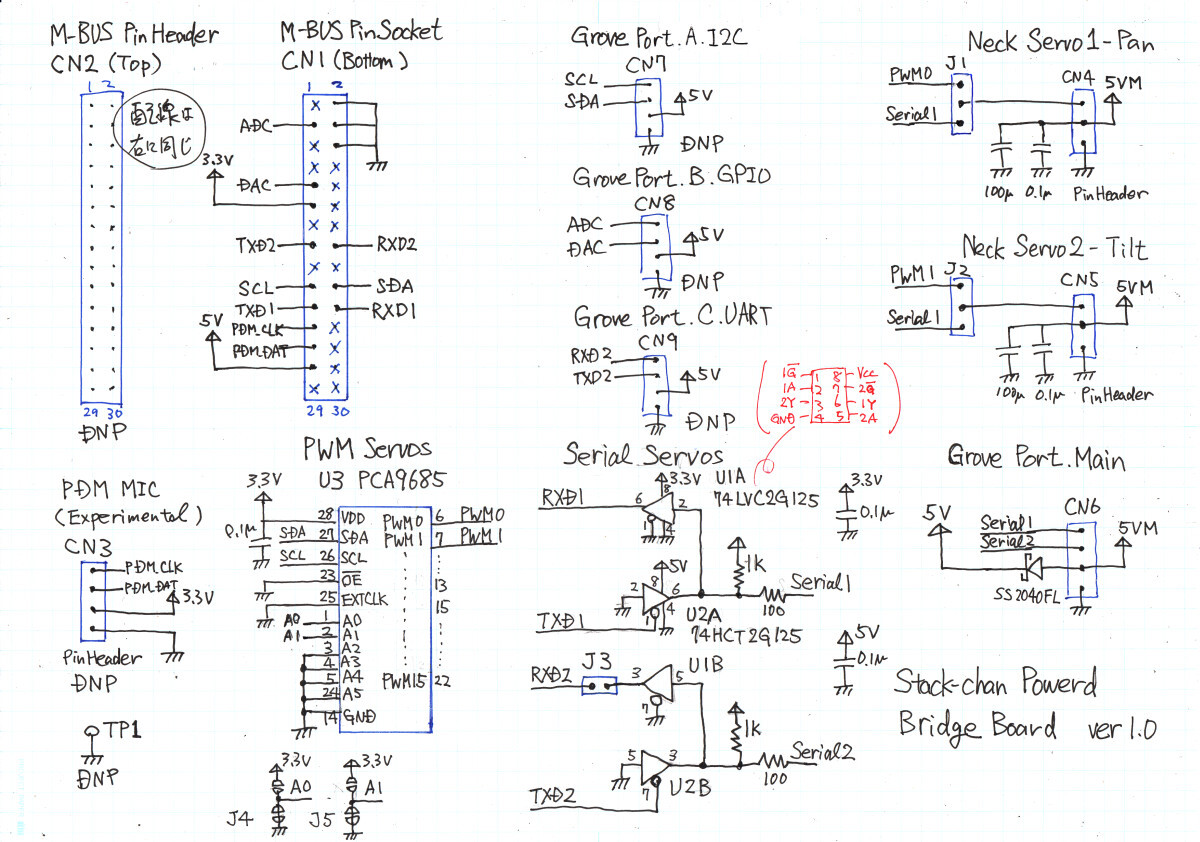 M-BUS Pin Header
CN2 (Top)
1 2
配線は
右に同じ
29 30
DNP
M-BUS Pin Socket
CN1 (Bottom)
1 2
ADC
3.3V
DAC
TXD2
RXD2
SCL
SDA
TXD1
RXD1
5V
PDM_CLK
PDM_DAT
29 30
Grove Port.A.I2C
CN7
SCL
SDA
5V
DNP
Grove Port.B.GPIO
CN8
ADC
DAC
5V
DNP
Grove Port.C.UART
CN9
RXD2
TXD2
5V
DNP
Neck Servo1-Pan
J1
PWM0
Serial1
CN4
5VM
100μ 0.1μ
PinHeader
Neck Servo2-Tilt
J2
PWM1
Serial1
CN5
5VM
100μ 0.1μ
PinHeader
1G̅ 1 8 Vcc
1A 2 7 2G̅
2Y 3 6 1Y
GND 4 5 2A
PDM MIC
(Experimental)
CN3
PDM_CLK
PDM_DAT
3.3V
PinHeader
DNP
TP1
DNP
PWM Servos
U3 PCA9685
3.3V
0.1μ
28 VDD
SDA 27 SDA
SCL 26 SCL
23 O̅E̅
25 EXTCLK
A0 1 A0
A1 2 A1
3 A2
4 A3
5 A4
24 A5
14 GND
PWM0 6 PWM0
PWM1 7 PWM1
13
15
PWM15 22
3.3V
A0
J4
3.3V
A1
J5
Serial Servos
U1A
74LVC2G125
3.3V
RXD1
6 8 2
1 4
3.3V
0.1μ
5V
2 8 6
1 4
TXD1
U2A
74HCT2G125
1k
100
Serial1
5V
0.1μ
U1B
RXD2
J3
3 5
7
1k
5 3
7
U2B
TXD2
100
Serial2
Grove Port.Main
5V
Serial1
Serial2
CN6
5VM
SS2040FL
Stack-chan Powerd
Bridge Board ver1.0